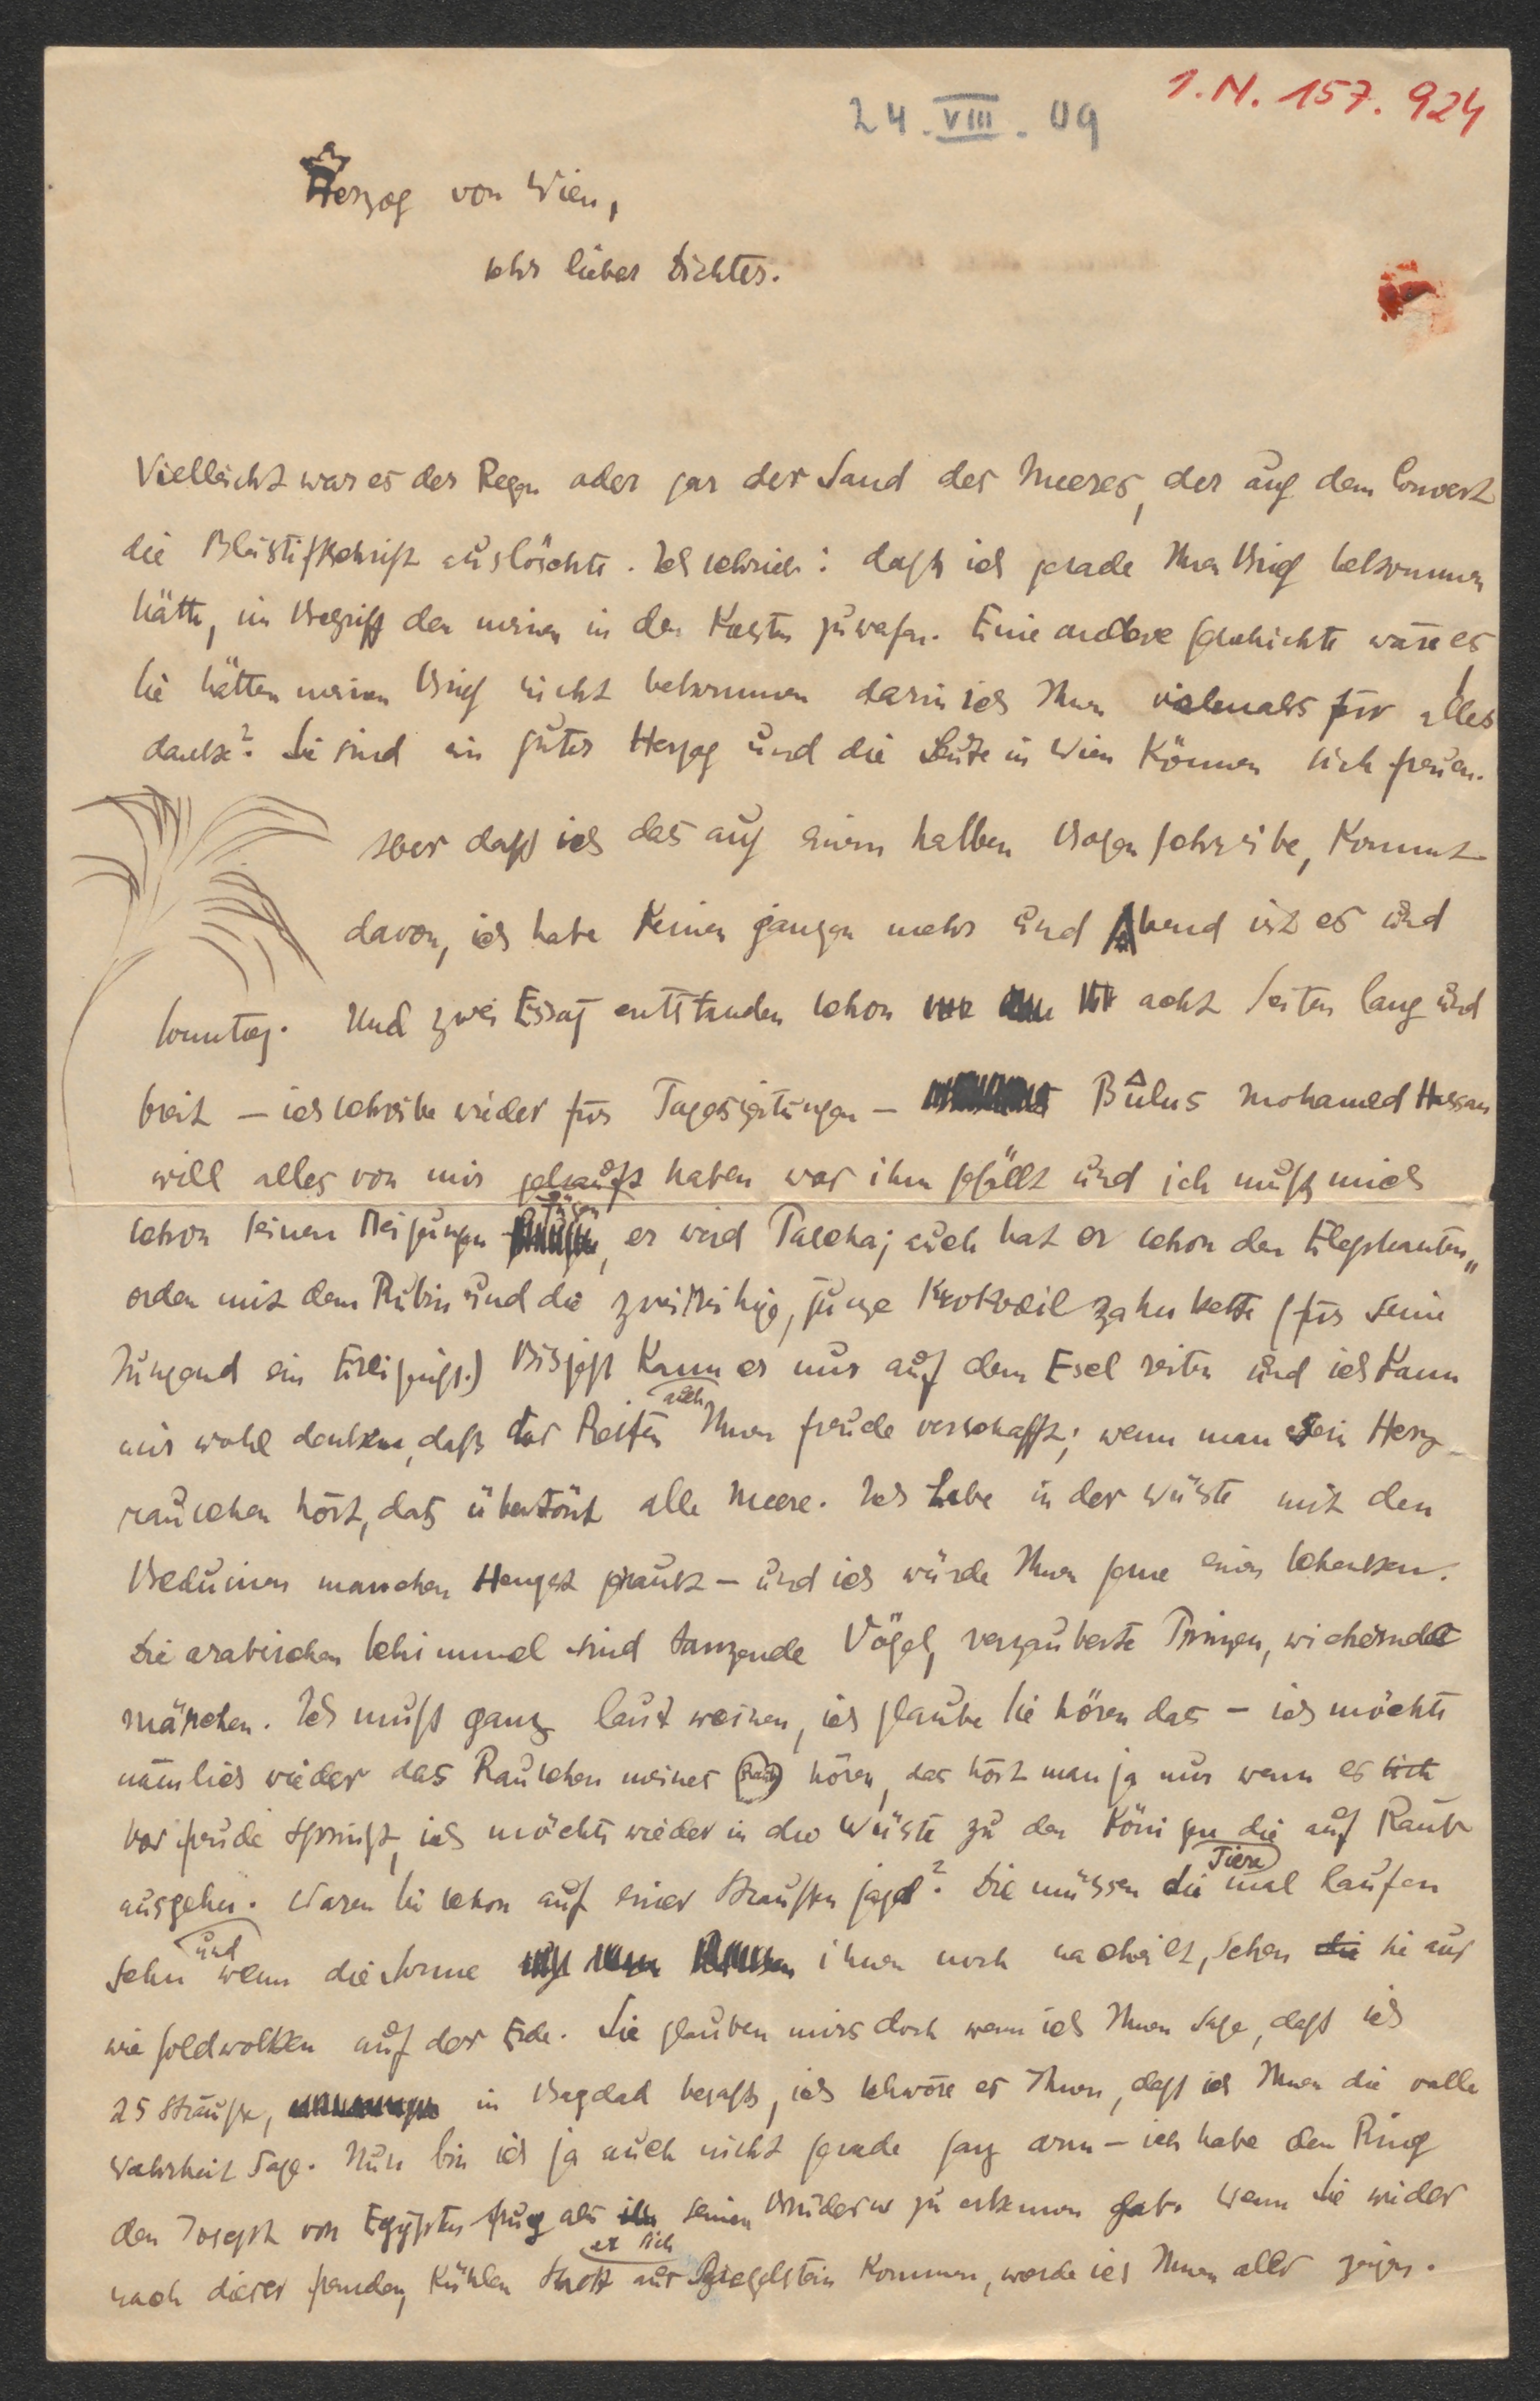 24. VIII. 09
I.N. 157.924
Herzog von Wien,
sehr lieber Dichter.
Vielleicht war es der Regen oder gar der Sand des Meeres, der auf dem Couvert
die Bleistiftschrift auslöschte. Ich schrieb: daß ich gerade Ihren Brief bekommen
hätte, im Begriff den meinen in den Kasten zu werfen. Eine andere Geschichte wäre es,
Sie hätten meinen Brief nicht bekommen darin ich Ihnen vielmals für alles
danke? Sie sind ein guter Herzog und die Leute in Wien können sich freuen.
Aber daß ich das auf einem halben Bogen schreibe, kommt
davon, ich habe keinen ganzen mehr und Abend ist es und
Sonntag. Und zwei Essay entstanden schon acht Seiten lang und
breit – ich schreibe wieder für Tageszeitungen – Bûlus Mohamed Hassan
will alles von mir gekauft haben was ihm gefällt und ich muß mich
schon seinen Neigungen fügen, er wird Pascha; auch hat er schon den Elephanten„
orden mit dem Rubin und die zweireihige, junge Krokodilzahnkette (für seine
Jungend ein Ereigniß.) Bis jetzt kann er nur auf dem Esel reiten und ich kann
mir wohl denken, daß das Reiten auch Ihnen Freude verschafft; wenn man sein Herz
rauschen hört, das übertönt alle Meere. Ich habe in der Wüste mit den
Beduinen manchen Hengst geraubt – und ich würde Ihnen gerne einen schenken.
Die arabischen Schimmel sind tanzende Vögel, verzauberte Prinzen, wiehernde
Märchen. Ich muß ganz laut weinen, ich glaube Sie hören das – ich möchte
nämlich wieder das Rauschen meines hören, das hört man ja nur wenn es sich
vor Freude springt, ich möchte wieder in die Wüste zu den Königen die auf Raub
ausgehn. Waren Sie schon auf einer Straußenjagd? Sie müssen die Tiere mal laufen
sehn und wenn die Sonne ihnen noch nacheilt, sehen die sie aus
wie Goldwolken auf der Erde. Sie glauben mir doch wenn ich Ihnen sage, daß ich
25 Strauße, in Bagdad besaß, ich schwöre es Ihnen, daß ich Ihnen die volle
Wahrheit sage. Nun bin ich ja auch nicht gerade ganz arm – ich habe den Ring
den Joseph von Egypten trug als er sich seinen Brüdern zu erkennen gab. Wenn Sie wieder
nach dieser fremden, kühlen Stadt aus Ziegelstein kommen, werde ich Ihnen alles zeigen.